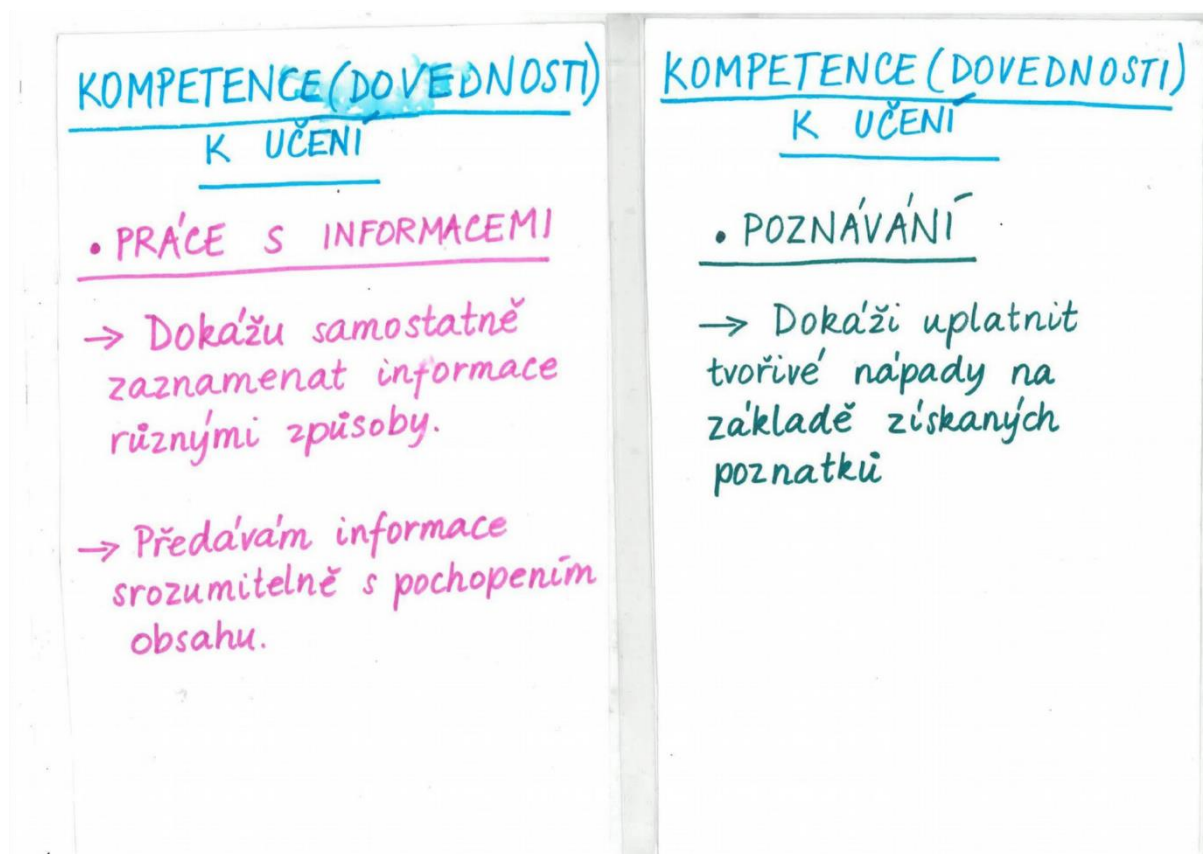 KOMPETENCE (DOVEDNOSTI)
K UČENÍ
• PRÁCE S INFORMACEMI
→ Dokážu samostatně
zaznamenat informace
různými způsoby.
→ Předávám informace
srozumitelně s pochopením
obsahu.
KOMPETENCE (DOVEDNOSTI)
K UČENÍ
• POZNÁVÁNÍ
→ Dokáži uplatnit
tvořivé nápady na
základě získaných
poznatků